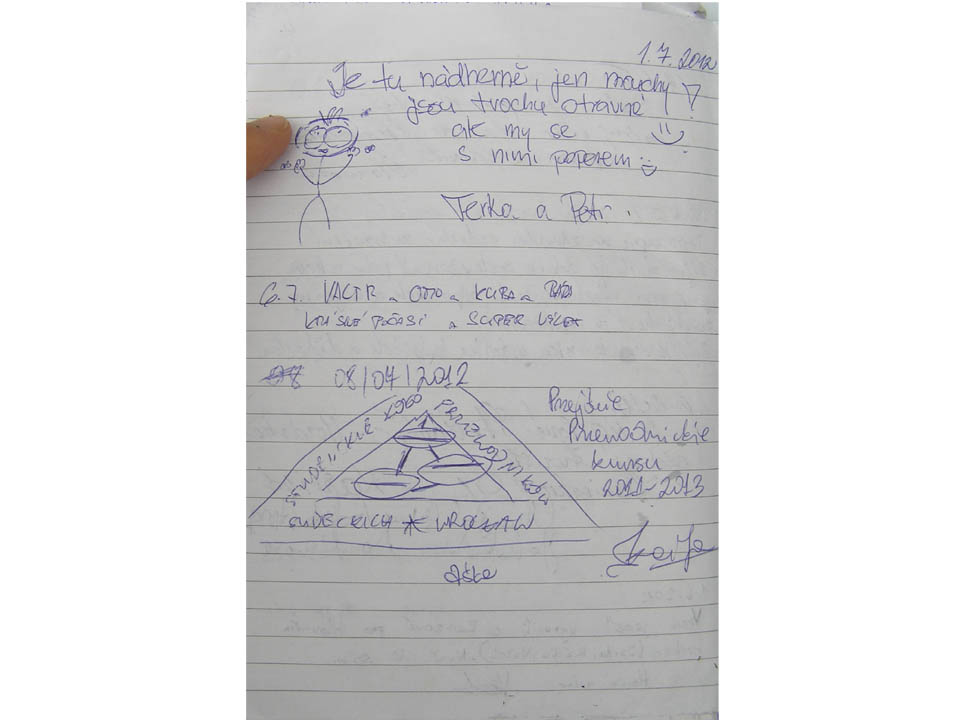 1.7.2012
Je tu nádherně, jen mouchy
jsou trochu otravné!
ale my se
s nimi poperem
Terka a Petr.
6.7. VALTR a OTTO a KUBA a
KRÁSNÉ POČASÍ a SUPER VÝLET
08/07/2012
STUDENCKIE KOŁO PRZEWODNIKÓW
SUDECKICH * WROCŁAW
Przejście
Przewodnickie
kursu
2011-2013